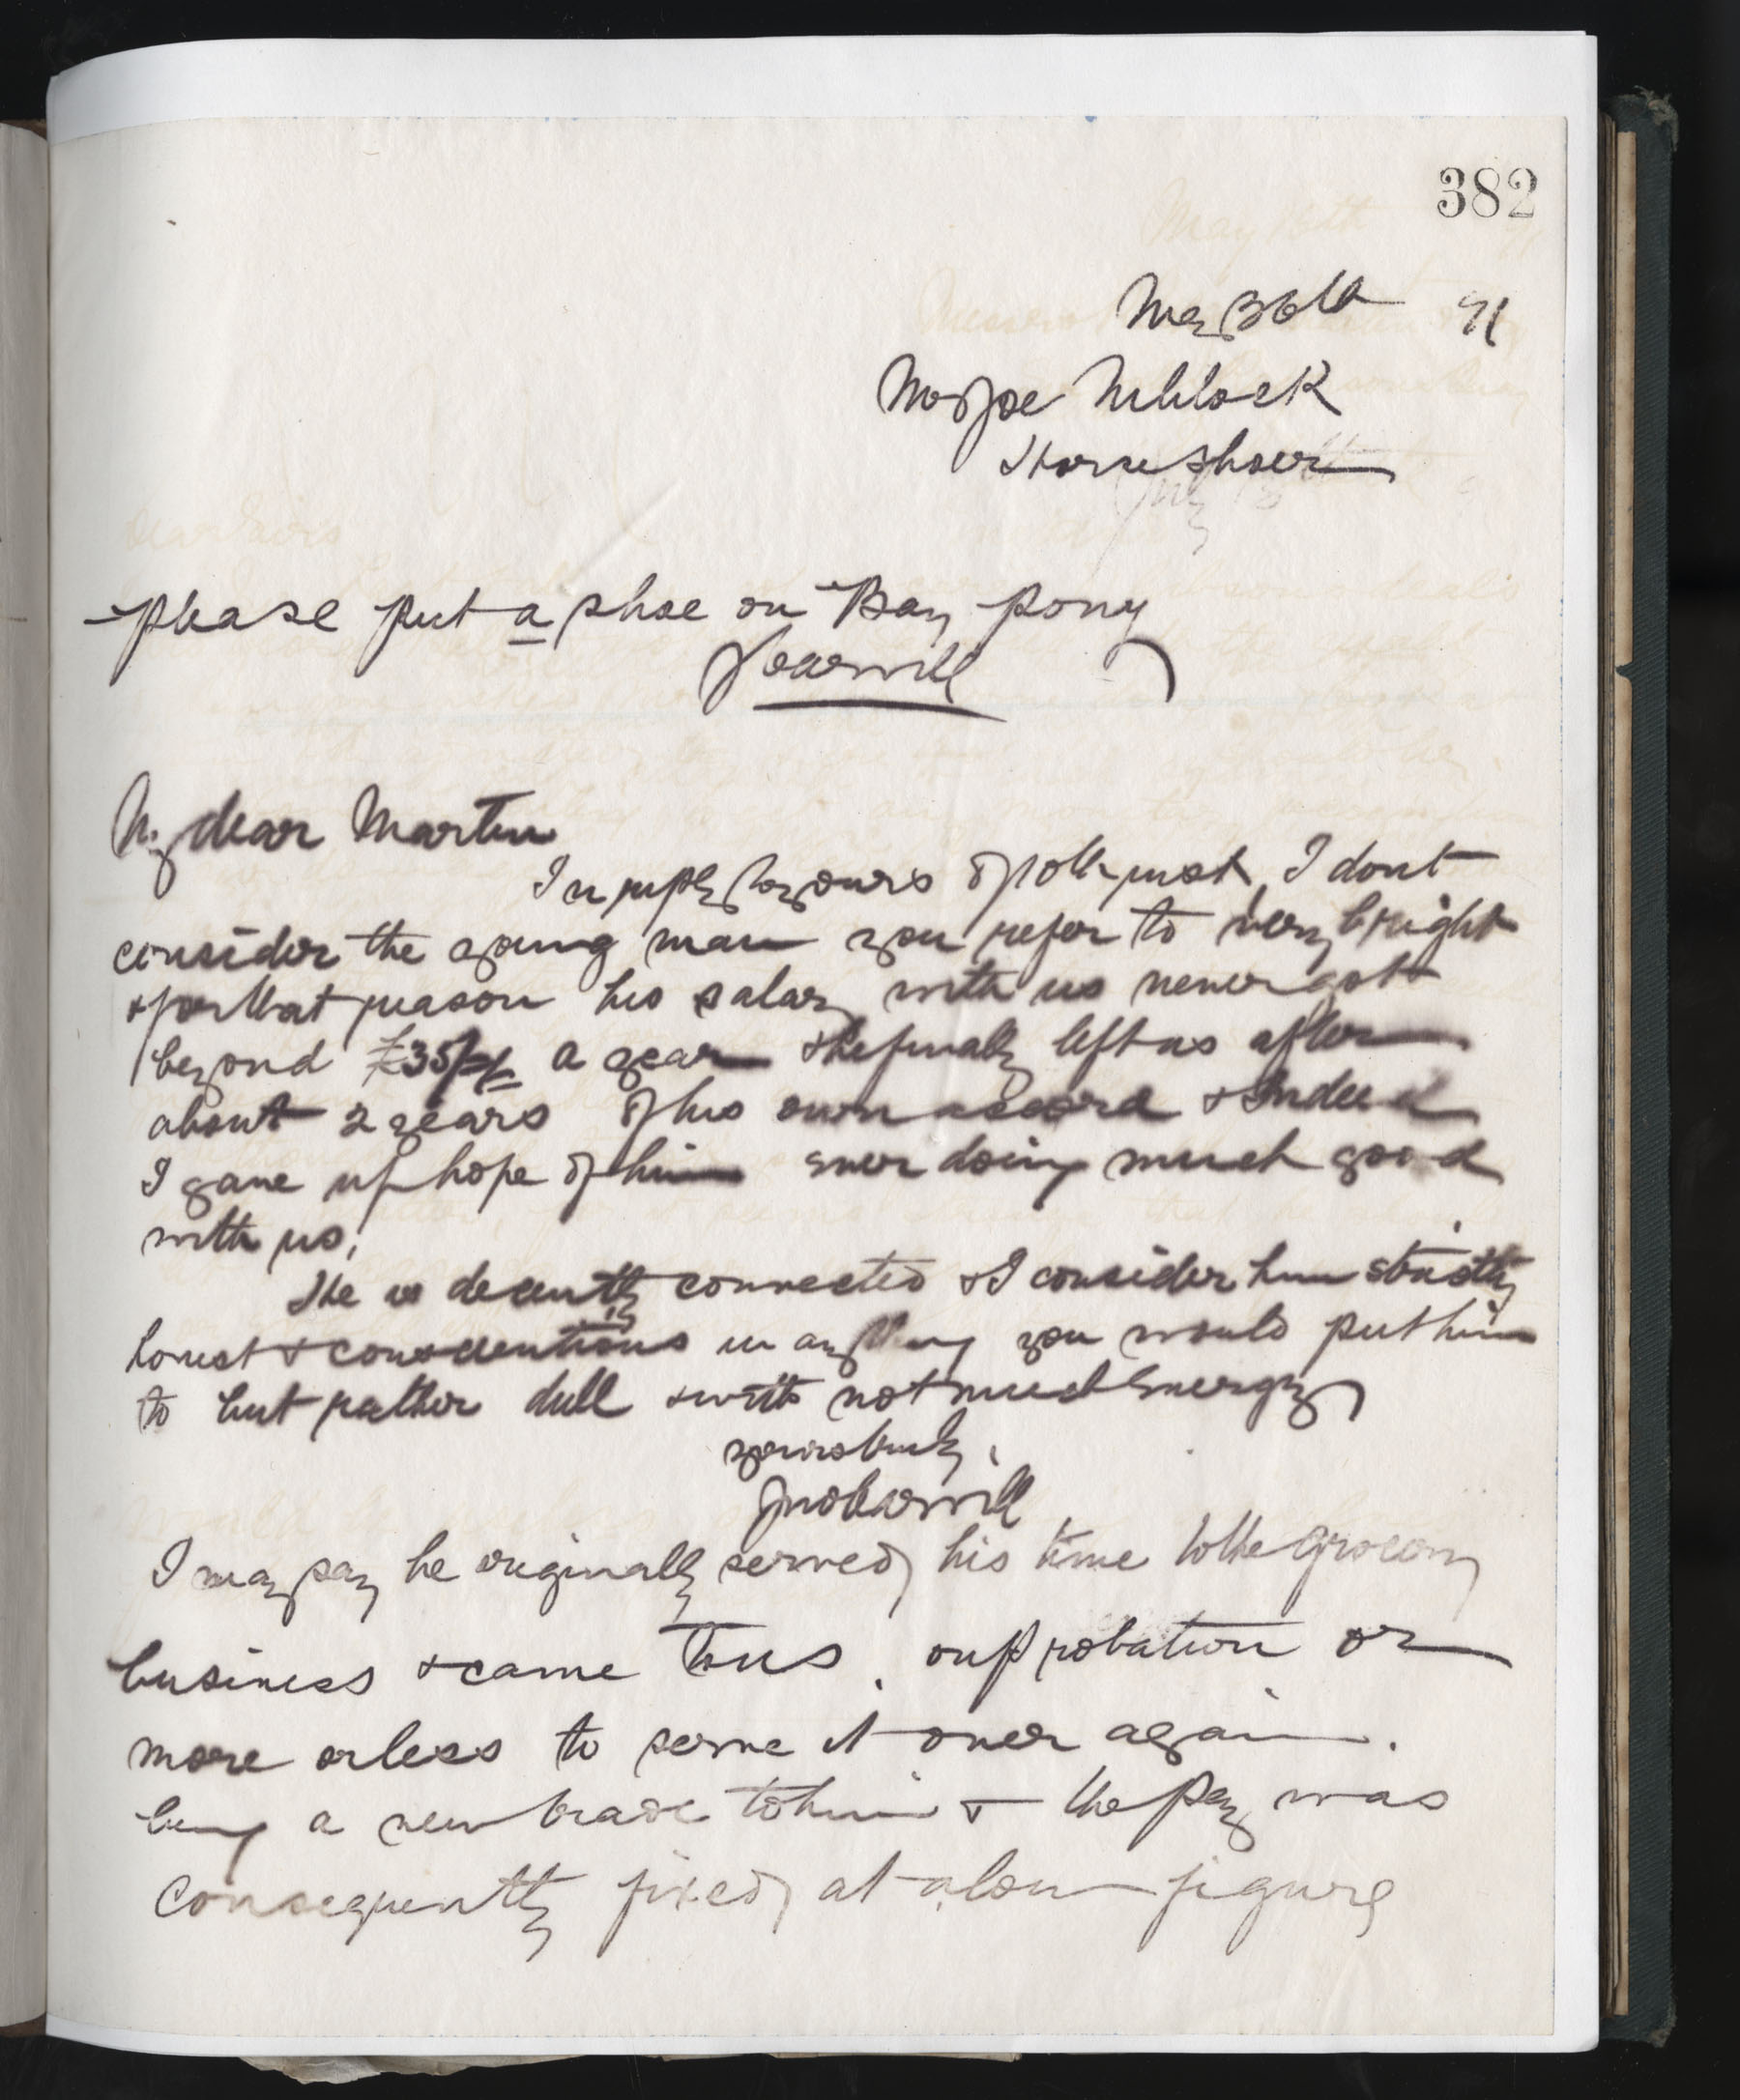 382
May 26th 91
Mr Joe Niblock
Horse Shoer
please put a shoe on Bay pony
My dear Martin
In reply to yours of 10th inst I dont
consider the young man you refer to very bright
& for that reason his salary with us never got
beyond £35/-/- a year & he finally left us after
about 2 years of his own accord & Indeed
I gave up hope of him ever doing much good
with us.
He is decently connected & I consider him strictly
honest & conscientious in anything you would put him
to but rather dull & with not much Energy
yours truly
I may say he originally served his time to the grocery
business & came to us . on probation or
more or less to serve it over again .
being a new trade to him & the pay was
consequently fixed at a low figure